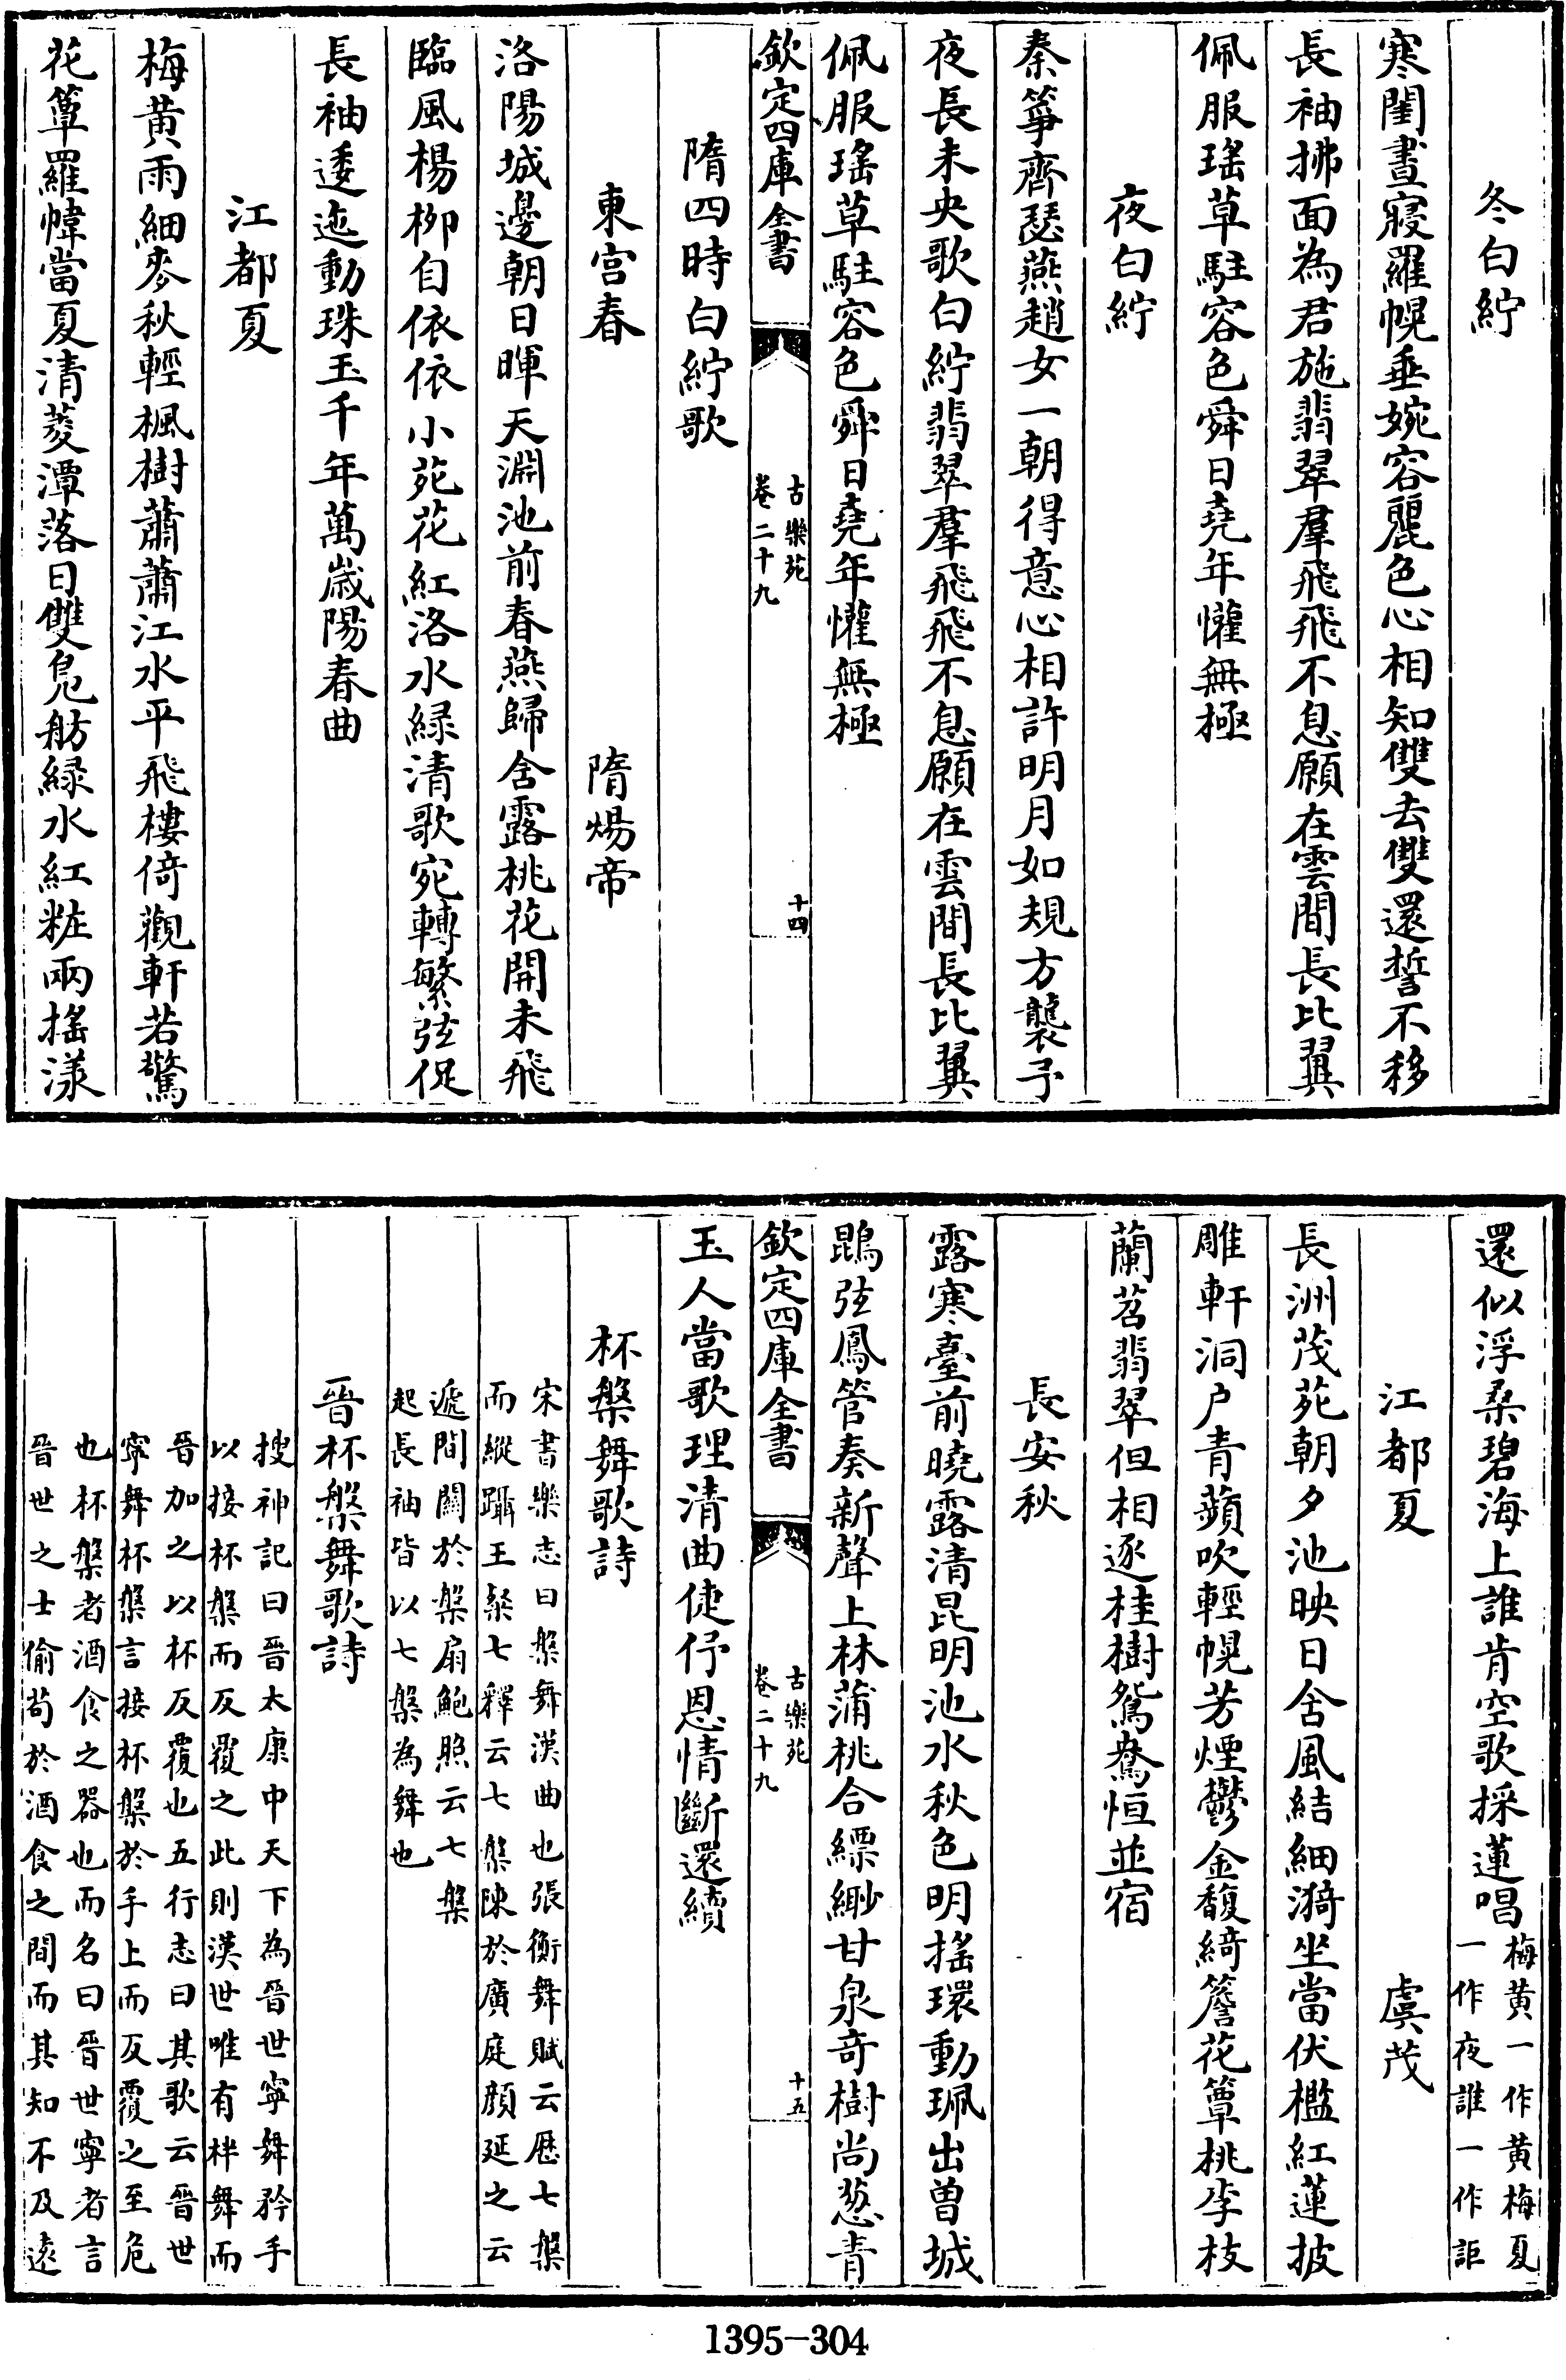 冬白紵
寒閨晝寢羅幌垂婉容麗色心相知雙去雙還誓不移
長袖拂面為君施翡翠羣飛飛不息願在雲間長比翼
佩服瑤草駐容色舜日堯年懽無極
夜白紵
秦箏齊瑟燕趙女一朝得意心相許明月如規方襲予
夜長未央歌白紵翡翠羣飛飛不息願在雲間長比翼
佩服瑤草駐容色舜日堯年懽無極
欽定四庫全書
古樂苑
卷二十九
十四
隋四時白紵歌
東宫春
隋煬帝
洛陽城邊朝日暉天淵池前春燕歸含露桃花開未飛
臨風楊栁自依依小苑花紅洛水緑清歌宛轉繁弦促
長袖逶迤動珠玉千年萬歲陽春曲
江都夏
梅黄雨細麥秋輕楓樹蕭蕭江水平飛樓倚觀軒若驚
花簟羅幃當夏清菱潭落日雙鳬舫緑水紅粧兩搖漾
還似浮桑碧海上誰肯空歌採蓮唱
梅黄一作黄梅夏
一作夜誰一作詎
江都夏
虞茂
長洲茂苑朝夕池映日含風結細漪坐當伏檻紅蓮披
雕軒洞户青蘋吹輕幌芳煙鬱金馥綺簷花簟桃李枝
蘭苕翡翠但相逐桂樹鴛鴦恒並宿
長安秋
露寒臺前曉露清昆明池水秋色明搖環動珮出曾城
鵾弦鳳管奏新聲上林蒲桃合縹緲甘泉竒樹尚葱青
欽定四庫全書
古樂苑
卷二十九
十五
玉人當歌理清曲倢伃恩情斷還續
杯槃舞歌詩
宋書樂志曰槃舞漢曲也張衡舞賦云歷七槃
而縱躡王粲七釋云七槃陳於廣庭顔延之云
遞間關於槃扇鮑照云七槃
起長袖皆以七槃為舞也
晉杯槃舞歌詩
搜神記曰晉太康中天下為晉世寧舞矜手
以接杯槃而反覆之此則漢世唯有柈舞而
晉加之以杯反覆也五行志曰其歌云晉世
寧舞杯槃言接杯槃於手上而反覆之至危
也杯槃者酒食之器也而名曰晉世寧者言
晉世之士偷茍於酒食之間而其知不及遠
1395-304